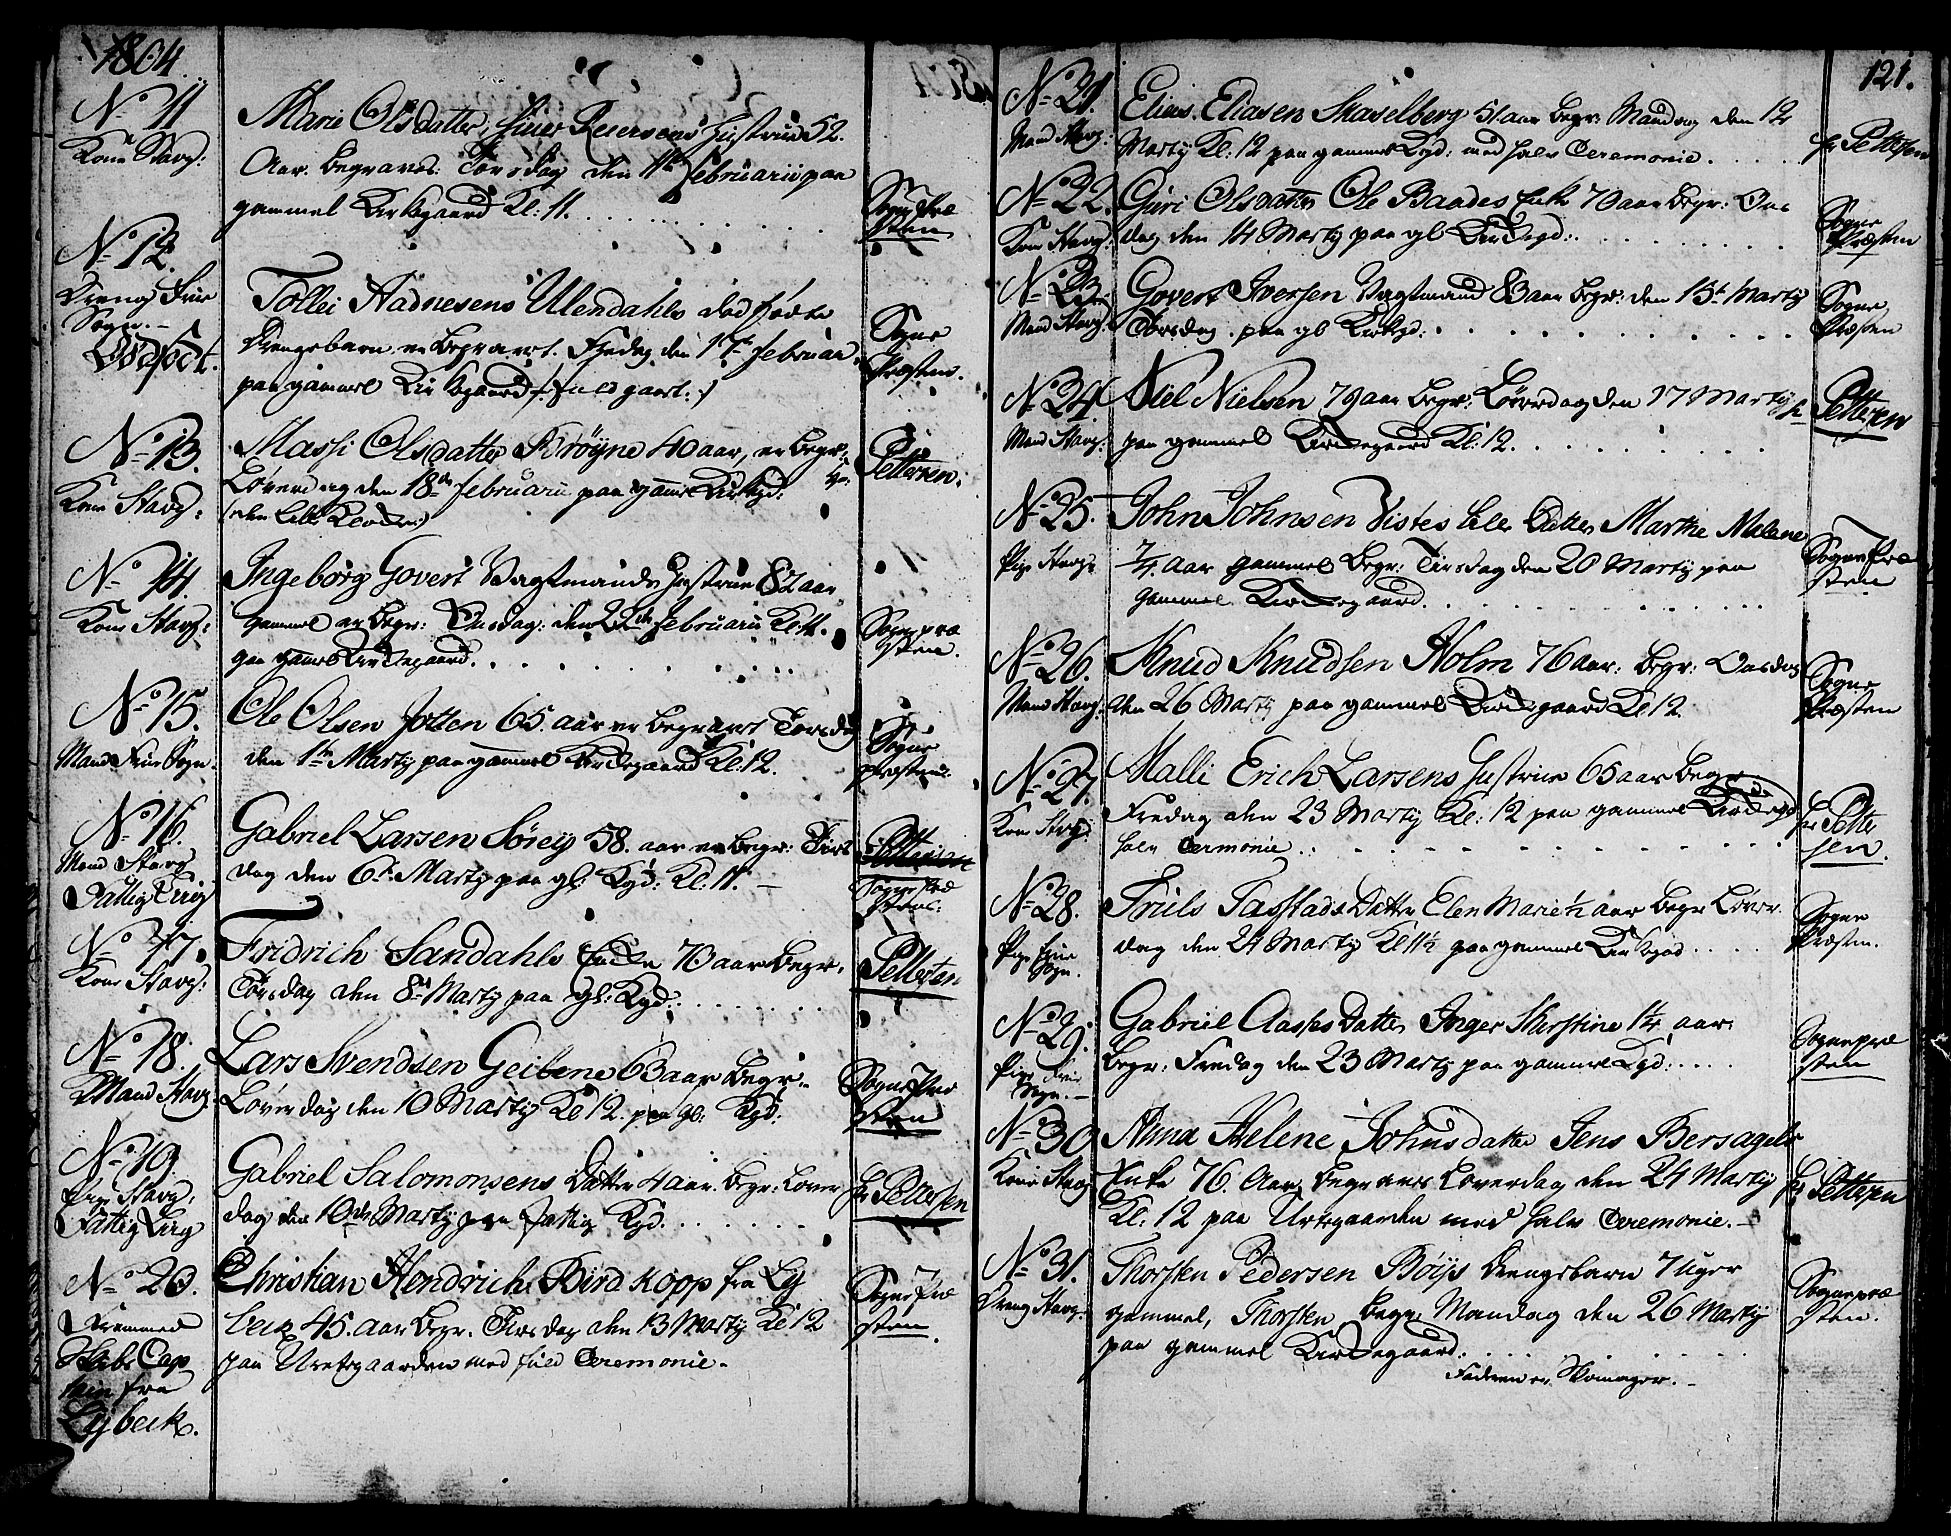 1804
No 11
Kone Stavg:
Marie Olsdatter, Einer Reiersens Hustrue 52.
Aar. begraves: Torsdag den 11te Februarii paa
gammel Kirkegaard Kl: 11.
Sogne Præ
sten
No 12.
Dreng Frue
Sogn. –
Dødfødt.
Tollei Aadnesens Ulendahls dødfødte
Drengebarn er begravet. Fredag den 17 Februar.
paa gammel Kirkegaard
Sogne
Præsten.
No 13.
Kone Stavg:
Massi Olsdatter Brøyne 40 aar, er begr:
Løverdag den 18de Februarii paa gamel Kirkgd:
Hr. Pettersen.
No 14.
Kone Stavg:
Ingeborg Govert Vagtmands Hustrue 82 aar
gammel er begr: Onsdag: den 22de Februarii Kl: 11.
paa gamel Kirkegaard.
Sognepræ
sten.
No 15.
Mand Frue Sogn.
Ole Olsen Jotten 65. aar er begravet Torsdag
den 1te Martj paa gammel Kirkegaard Kl: 12.
Sogne
præsten.
No 16.
Mand Stavg
Fattig
Gabriel Larsen Sørey 58. aar er begr: Tirs
dag den 6te Martj paa gl: Kgd: Kl: 11. –
Sogne Præ
sten:
No 17.
Kone Stavg:
Fridrich Sandahls Enke 70 aar Begr.
Torsdag den 8de Martj paa gl: Kgd:
Pettersen
No 18.
Mand Stavg.
Lars Svendsen Geilene 63 aar Begr.
Løverdag den 10 Martj Kl 12. paa gl: Kgd:
Sogne Præ
sten
No 19.
Pige Stavg:
Fattig
Gabriel Salomonsens Datter 4 aar. begr: Løver
dag den 10de Martj paa fattig Kgd.
Hr Pettersen
No 20.
Fremmed
Skibs Cap
tein fra
Lybeck.
Christian Hendrich Bird Kopp fra Ly
beck 45. aar Begr. Tirsdag den 13 Martj Kl 12
paa Urtegaarden med fuld Ceremonie.
Sogne Præ
sten
121.
No 21.
Mand Stavg:
Elias Eliasen Skaselberg 51 aar begr: Mandag den 12
Martj Kl: 12 paa gammel Kgd: med halv Ceremonie.
Hr Pettersen
No 22.
Kone Stavg:
Guri Olsdatter Ole Baades Enke 70 aar Begr: Ons
dag den 14 Martj paa gl Kirkegd:
Sogne
Præsten
No 23.
Mand Stavg:
Govert Iversen Vagtmand 83 aar begr: den 15t Martj
Torsdag paa gl Kirkgd:
Sogne
Præsten
No 24
Mand Stavg:
Niel Nielsen 79 aar begr: Løverdag den 17 Martj
paa gammel Kirkegaard Kl: 12.
Hr Pettersen
No 25.
Pige Stavg:
John Johnsen Vistes lille Datter Marthe Malene
7/4. aar gammel Begr: Tirsdag den 20 Martj paa
gammel Kirkegaard.
Sogne Præ
sten
No 26.
Mand Stavg:
Knud Knudsen Holm 76 aar: begr: Onsdag
den 26 Martj paa gammel Kirkegaard Kl 12.
Sogne
Præsten
No 27.
Kone Stavg:
Malli Erich Larsens Hustrue 65 aar Begr.
Fredag den 23 Martj Kl: 12 paa gammel Kirkegd
halv Cermonie.
Hr Petter
sen.
No 28.
Pige Frue
Sogn.
Truls Tastads Datter Elen Marie 1/2 aar Begr Løver
dag den 24 Martj Kl 11½ paa gammel Kirkgrd
Sogne
Præsten.
No 29.
Pige Frue
Sogn. –
Gabriel Aases Datter Inger Kirstine 1¼ aar.
Begr: Fredag den 23 Martj paa gammel Kgd:
Sognepræ
sten
No 30
Kone Stavg
Anna Helene Johnsdatter Jens Bersagels
Enke 76. Aar, begraves Løverdag den 24 Martj
Kl: 12 paa Urtegaarden med halv Ceremonie. –
Hr Pettersen
No 31.
Dreng Stavg:
Thorsten Pedersen Bøys Drengebarn 7 Uger
gammel, Thorsten begr: Mandag den 26 Martj
paa gammel Kirkegaard.
Faderen er Skomager. –
Sognepræ
sten.